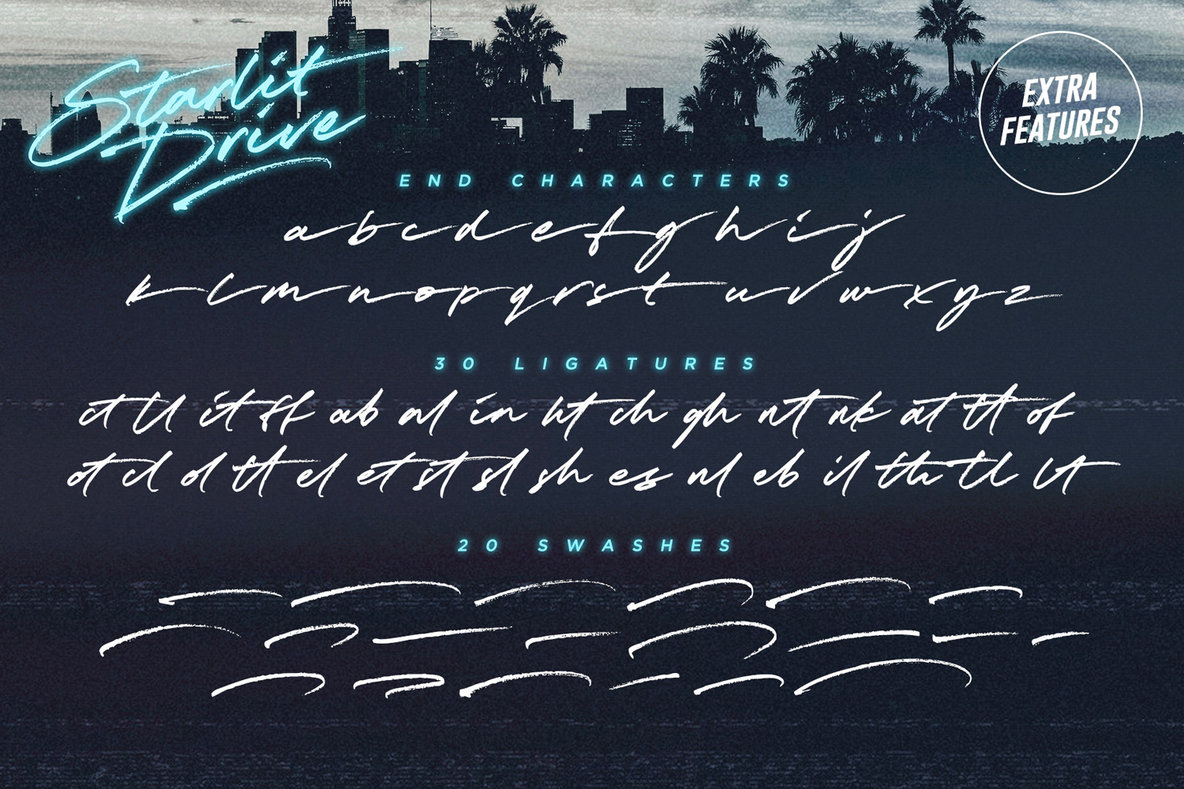 Starlit
Drive
EXTRA
FEATURES
END CHARACTERS
a b c d e f g h i j
k l m n o p q r s t u v w x y z
30 LIGATURES
ct ll it ff ab al in ht ch gh nt nk at of
ot cl ol tt el et st sl sh es nl eb il th tl lt
20 SWASHES